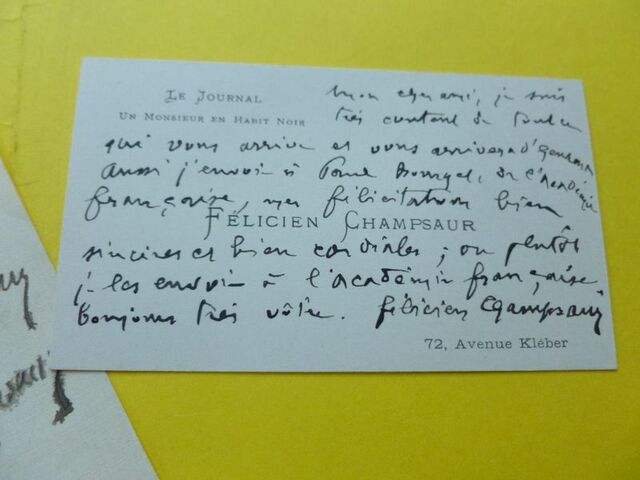 Le Journal
Un Monsieur en Habit Noir
Mon cher ami, je suis
très content de tout ce
qui vous arrive et vous arrivera d'heureux
aussi j'envoie à Paul Bourget, de l'Académie
française, mes félicitations bien
Félicien Champsaur
sincères et bien cordiales ; ou plutôt
je les envoie à l'académie française.
Toujours très vôtre. Félicien Champsaur
72, Avenue Kléber